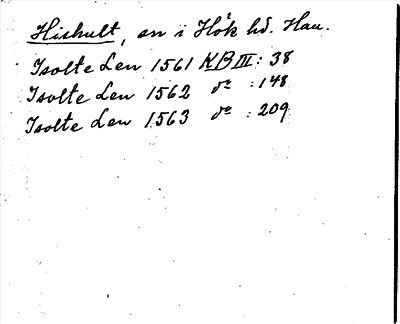 Hishult, sn i Hök hd. Hau.
Isolte Len 1561 KB III : 38
Isolte Len 1562 do : 148
Isolte Len 1563 do : 209